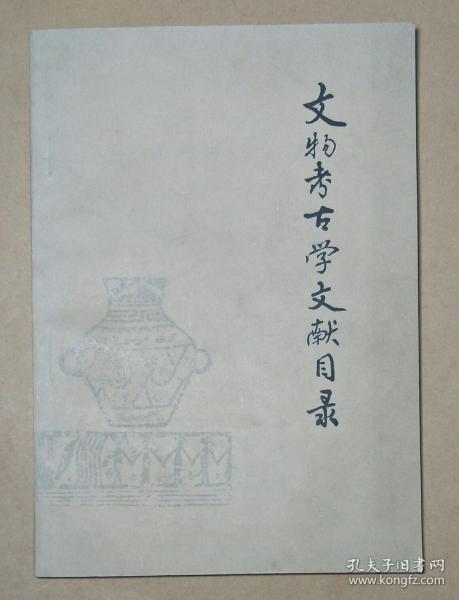 文物考古学文献目录
孔夫子旧书网
www.kongfz.com